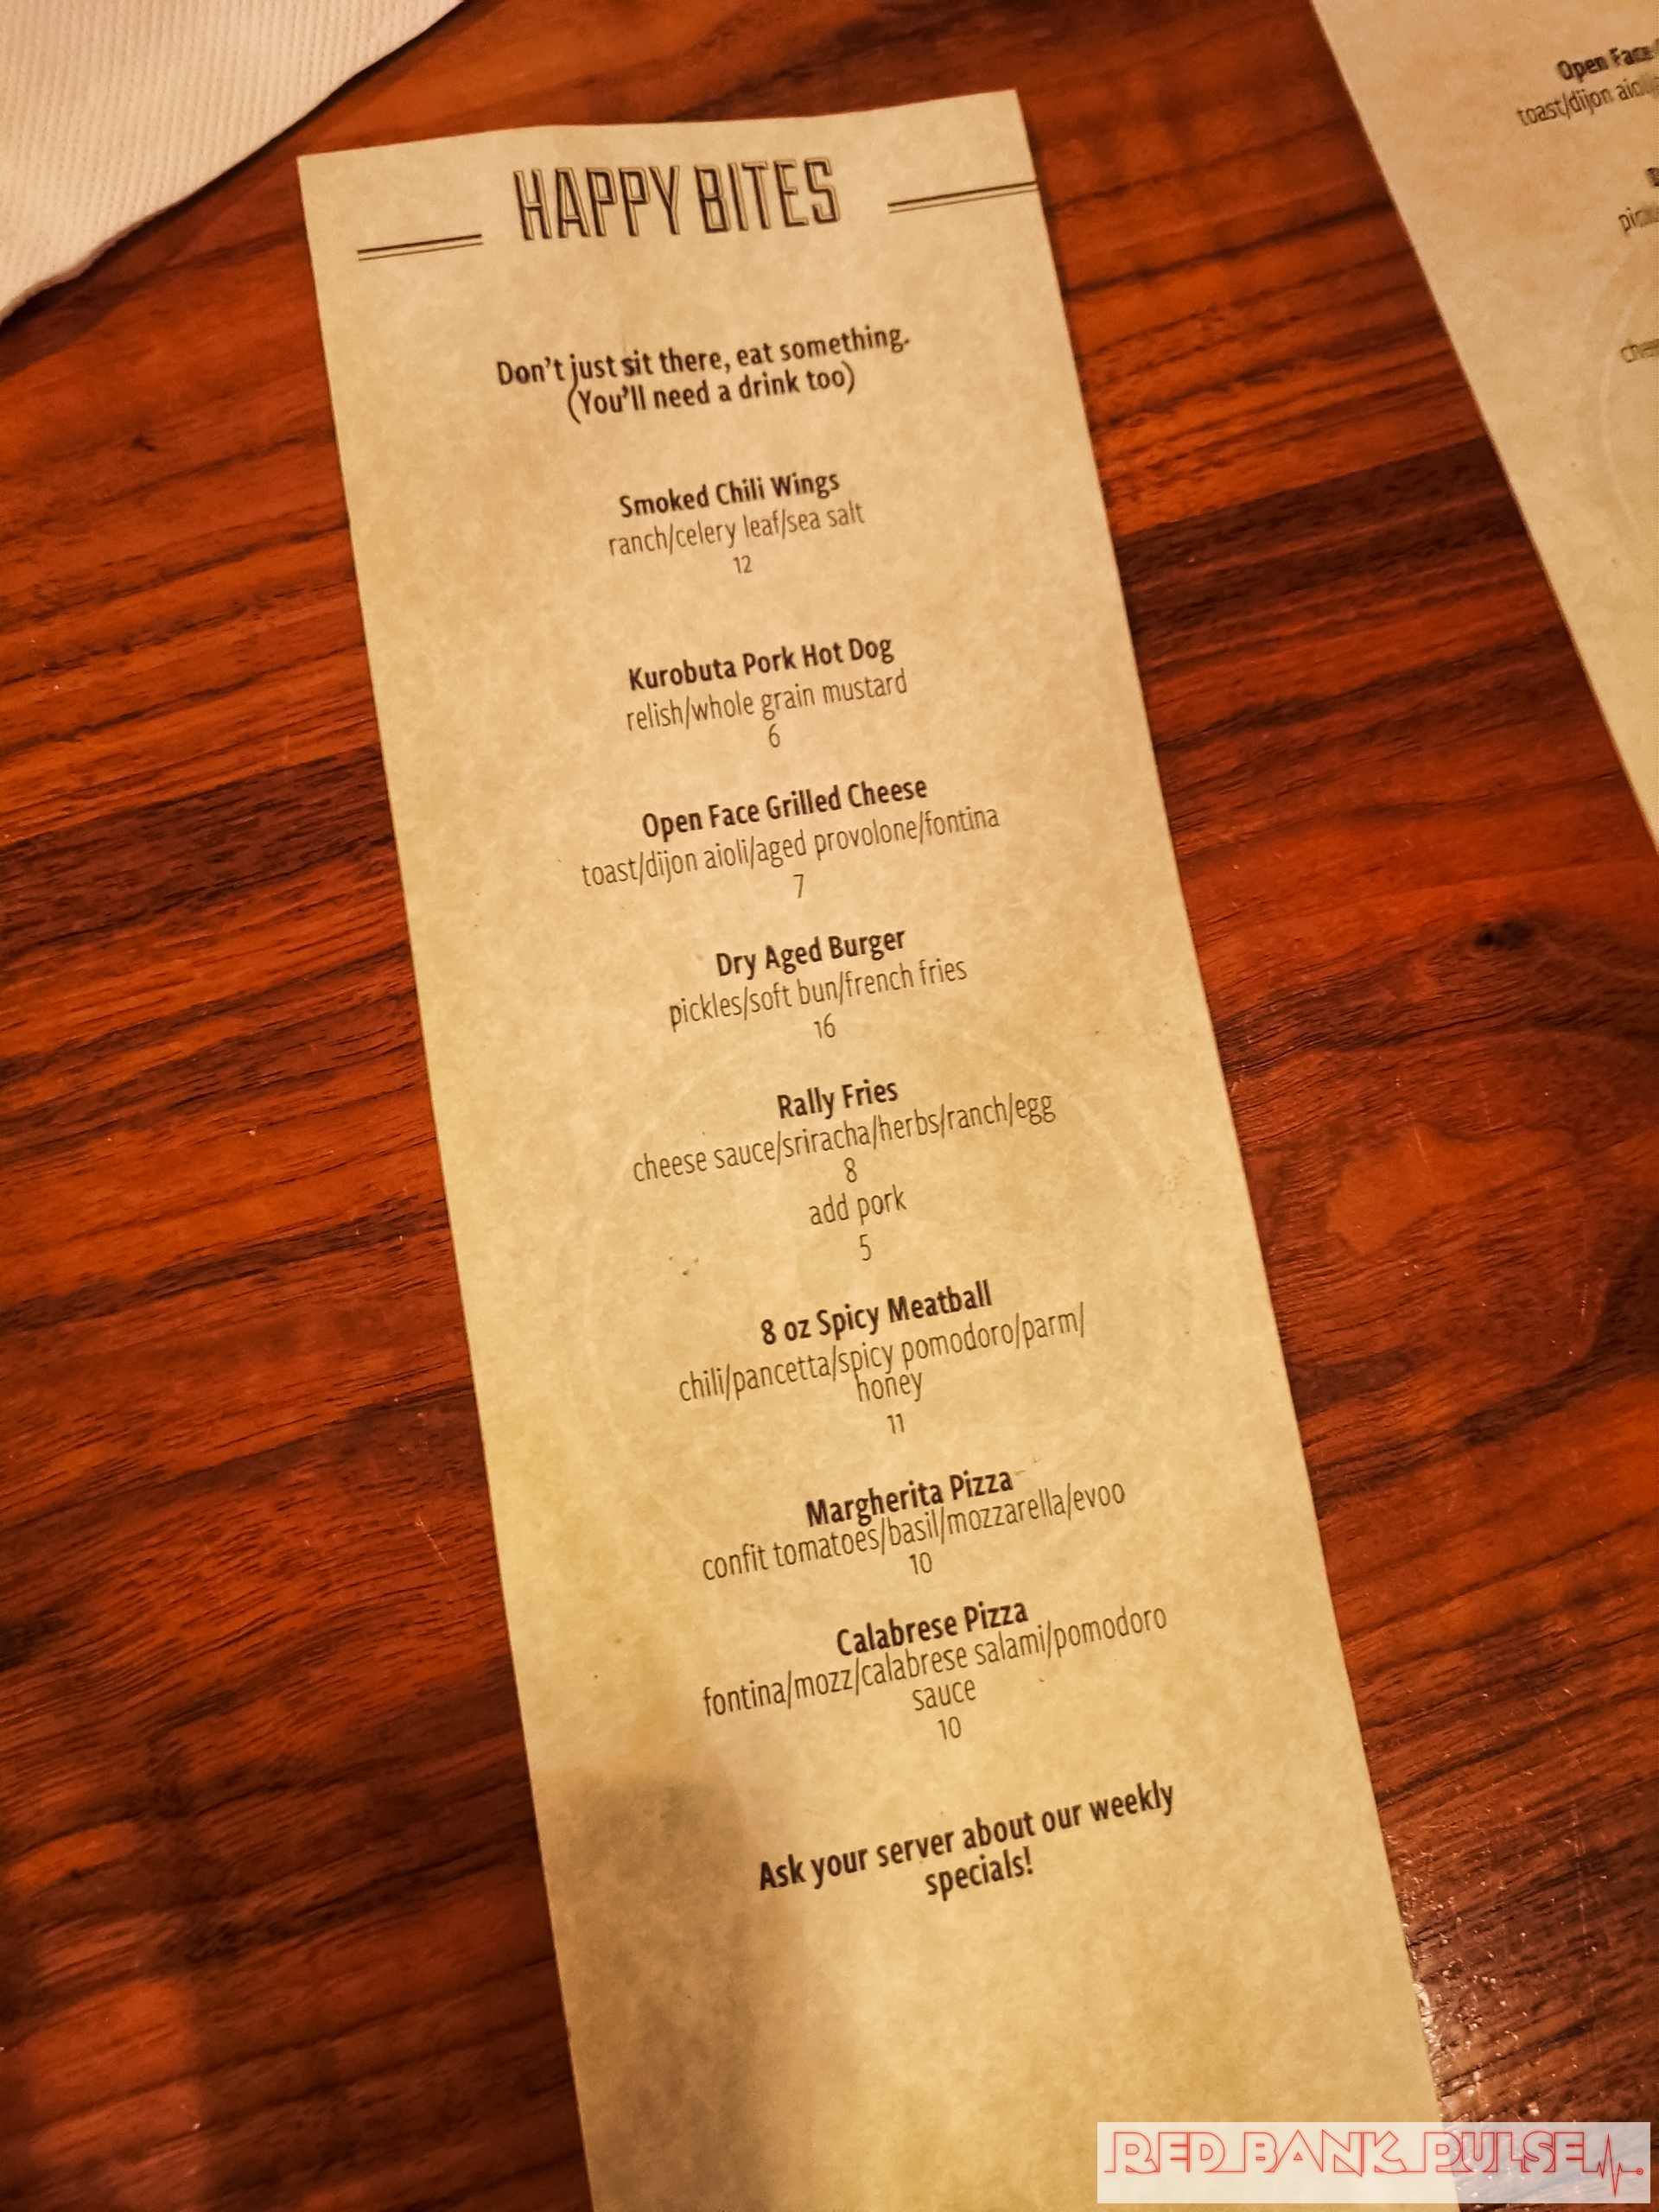 HAPPY BITES
Don't just sit there, eat something.
(You'll need a drink too)
Smoked Chili Wings
ranch/celery leaf/sea salt
12
Kurobuta Pork Hot Dog
relish/whole grain mustard
6
Open Face Grilled Cheese
toast/dijon aioli/aged provolone/fontina
7
Dry Aged Burger
pickles/soft bun/french fries
16
Rally Fries
cheese sauce/sriracha/herbs/ranch/egg
8
add pork
5
8 oz Spicy Meatball
chili/pancetta/spicy pomodoro/parm/
honey
11
Margherita Pizza
confit tomatoes/basil/mozzarella/evoo
10
Calabrese Pizza
fontina/mozz/calabrese salami/pomodoro
sauce
10
Ask your server about our weekly
specials!
Open Face
toast/dijon
RED BANK PULSE